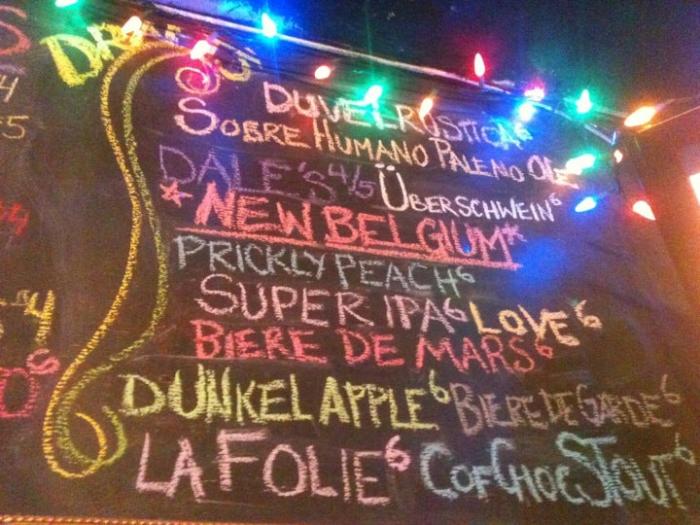 DRAFTS
DUVEL RUSTICA 6
SOBRE HUMANO PALENO OLE
DALE'S 4/5 ÜBERSCHWEIN 6
*NEW BELGIUM*
PRICKLY PEACH 6
SUPER IPA 6 LOVE 6
BIERE DE MARS 6
DUNKEL APPLE 6 BIERE DE GARDE 6
LA FOLIE 6 COFCHOCSTOUT 6